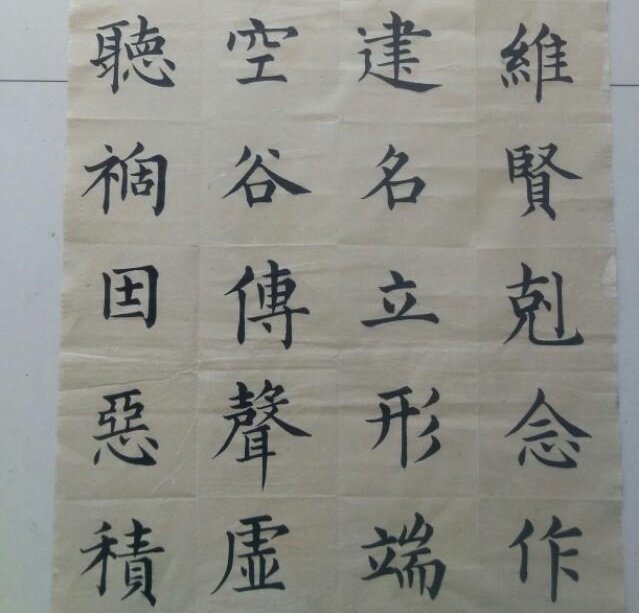 維賢剋念作
建名立形端
空谷傳聲虚
聽禍因惡積